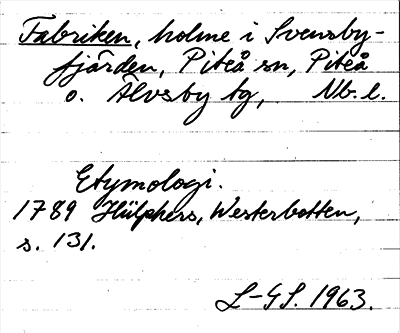 Fabriken, holme i Svensby-
fjärden, Piteå sn, Piteå
o. Älvsby tg, Nb. l.
Etymologi.
1789 Hülphers, Westerbotten,
s. 131.
L-GS. 1963.